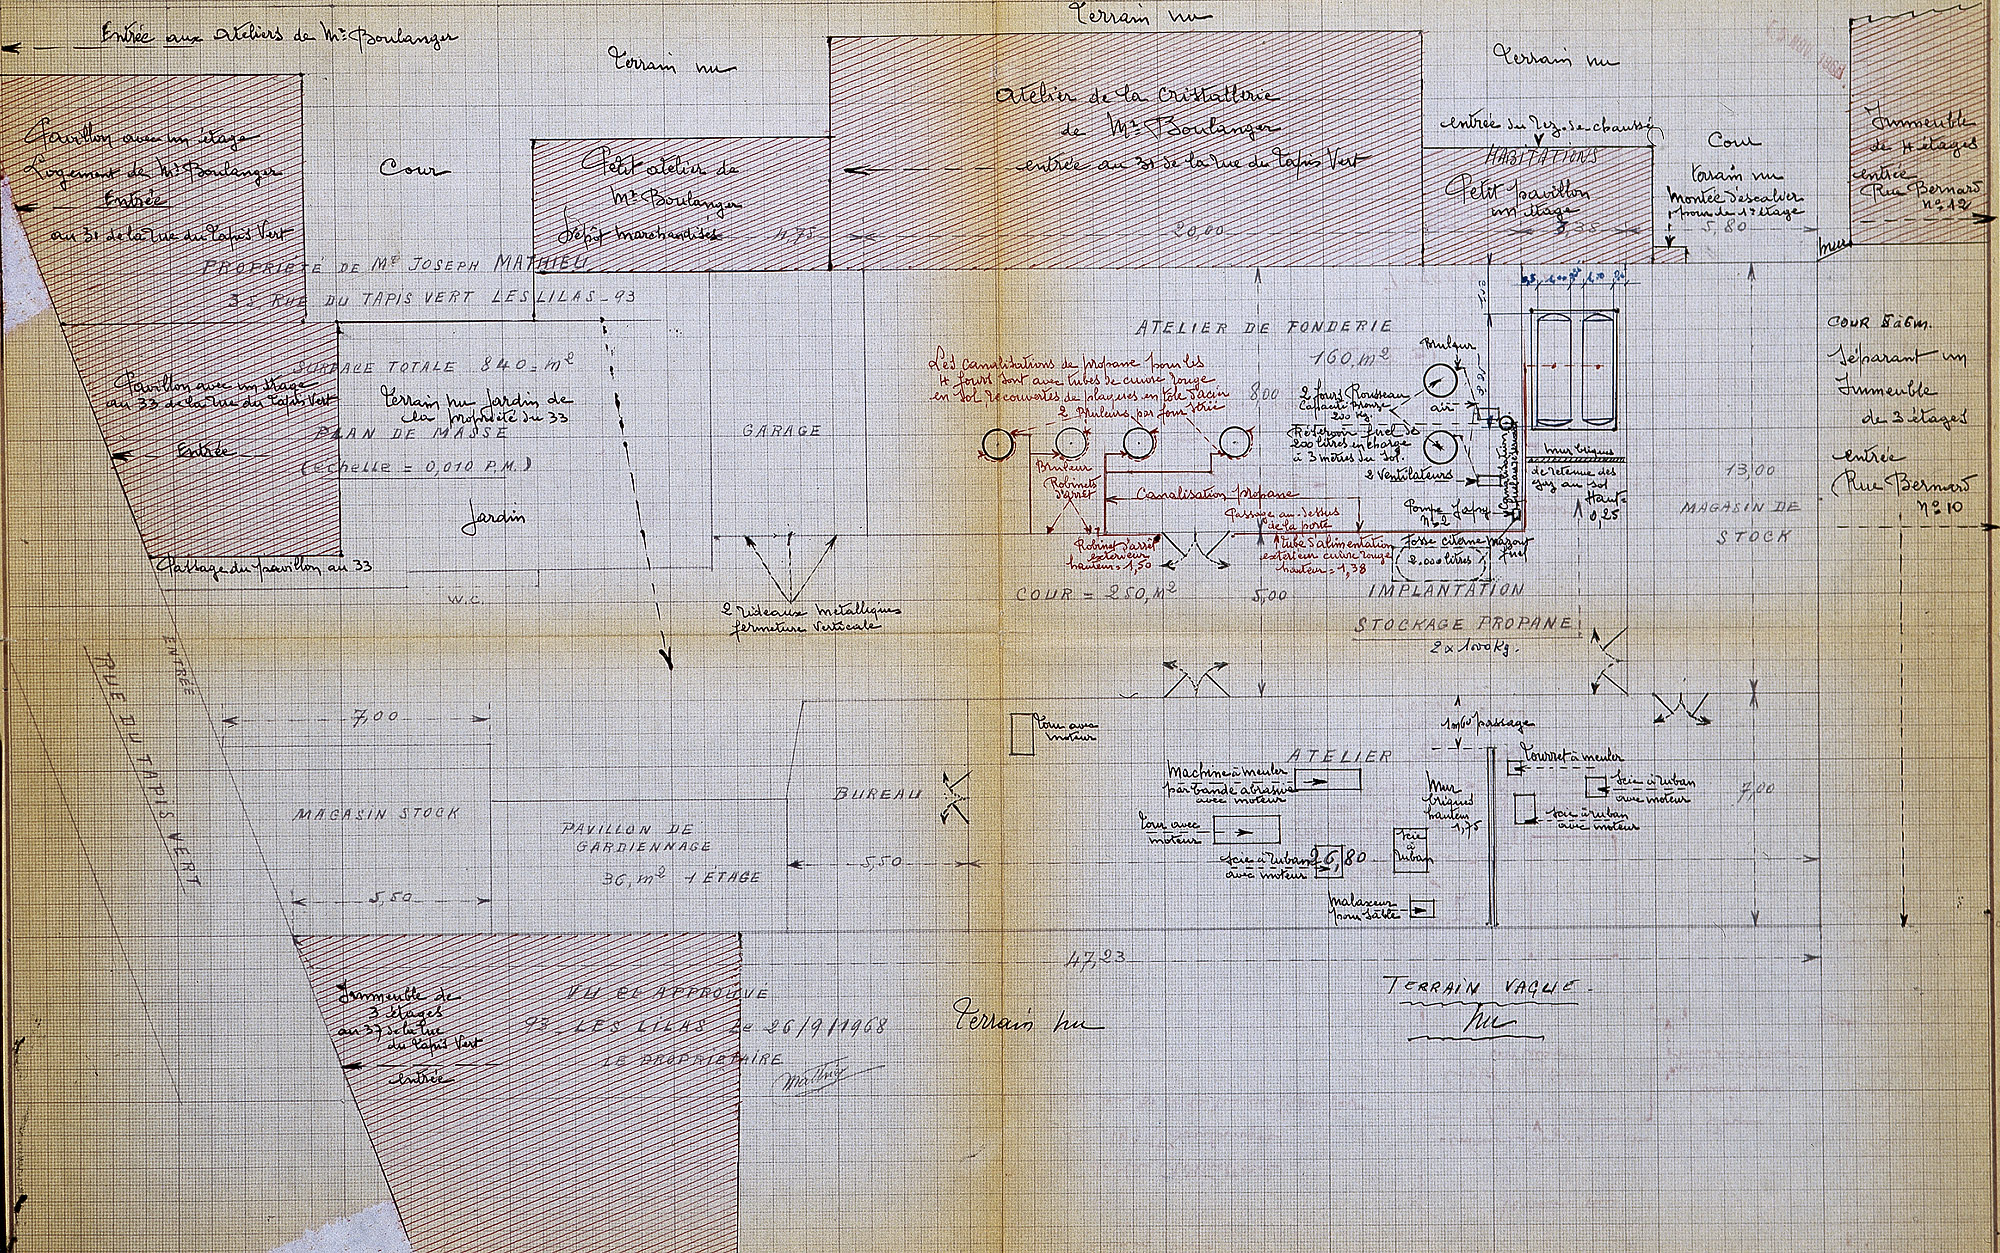 Terrain nu
Entrée aux Ateliers de Mr Boulanger
Terrain nu
Terrain nu
Atelier de la Cristallerie
de Mr Boulanger
entrée au 31 de la rue du Tapis Vert
20,00
entrée du Rez-de-chaussé
HABITATIONS
Petit pavillon
un étage
Cour
terrain nu
montée d'escalier
pour le 1er étage
5,80
mur
Immeuble
de 4 étages
entrée
Rue Bernard
n° 12
Pavillon avec un étage
Logement de Mr Boulanger
Entrée
au 31 de la rue du Tapis Vert
Cour
Petit atelier de
Mr Boulanger
Dépôt marchandises
4,75
PROPRIÉTÉ DE Mr JOSEPH MATHIEU
35 RUE DU TAPIS VERT LES LILAS - 93
SURFACE TOTALE 840 - m²
Pavillon avec un étage
au 33 de la rue du Tapis Vert
Terrain nu Jardin de
la propriété du 33
PLAN DE MASSE
(échelle = 0,010 P.M.)
Entrée
Jardin
Passage du pavillon au 33
W.C.
GARAGE
2 rideaux métalliques
fermeture verticale
ATELIER DE FONDERIE
160, m²
8,00
Les canalisations de propane pour les
4 fours sont avec tubes de cuivre rouge
en sol, recouvertes de plaques en tôle d'acier
strié
2 Bruleurs par four
Bruleur
Robinets
d'arrêt
Canalisation propane
Passage au-dessus
de la porte
Robinet d'arrêt
extérieur
hauteur = 1,50
tube d'alimentation
extérieur cuivre rouge
hauteur = 1,38
Bruleur
2 fours Rousseau
Capacité Bronze
200 Kg
air
Réservoir fuel de
200 litres en charge
à 3 mètres du sol.
2 Ventilateurs
Pompe Japy
n° 2
Fosse citerne mazout
fuel
2.000 litres
mur briques
de retenue des
gaz au sol
Haut.
0,25
COUR = 250, m²
5,00
IMPLANTATION
STOCKAGE PROPANE
2 x 1000 Kg.
13,00
MAGASIN DE
STOCK
COUR 5 à 6 m.
Séparant un
Immeuble
de 3 étages
entrée
Rue Bernard
n° 10
ENTRÉE
RUE DU TAPIS VERT
7,00
MAGASIN STOCK
5,50
PAVILLON DE
GARDIENNAGE
36, m² 1 ÉTAGE
BUREAU
5,50
Tour avec
moteur
ATELIER
1m60 passage
Machine à meuler
par bande abrasive
avec moteur
Tour avec
moteur
Scie à ruban
avec moteur
26,80
Scie
à
ruban
Malaxeur
pour sable
Mur
briques
hauteur
1,75
Touret à meuler
Scie à ruban
avec moteur
Scie à ruban
avec moteur
7,00
47,23
TERRAIN VAGUE -
nu
Terrain nu
Immeuble de
3 étages
au 37 de la rue
du Tapis Vert
entrée
VU et APPROUVÉ
93 - LES LILAS Le 26/9/1968
LE PROPRIÉTAIRE